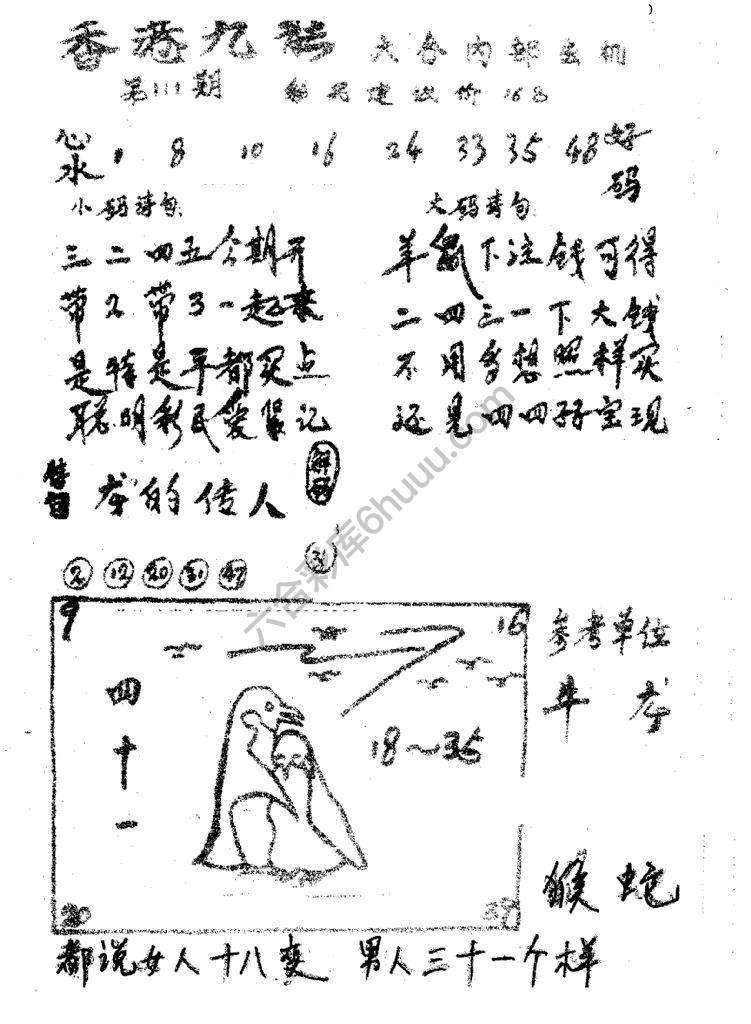 香港九龙 六合内部玄机
第111期 彩民建议价168
心水 1 8 10 16 24 33 35 48 好码
小码诗句
三二四五今期开
带2带3一起来
是特是平都买点
聪明彩民爱紧记
大码诗句
羊鼠下注钱可得
二四三一下大钱
不用多想照样买
还见四四孖宝现
特句 龙的传人 解码
2 12 20 31 42 31
9 16
四十一
18~35
20
参考单位
牛 龙
猴 蛇
都说女人十八变 男人三十一个样
六合彩库6huuu.com